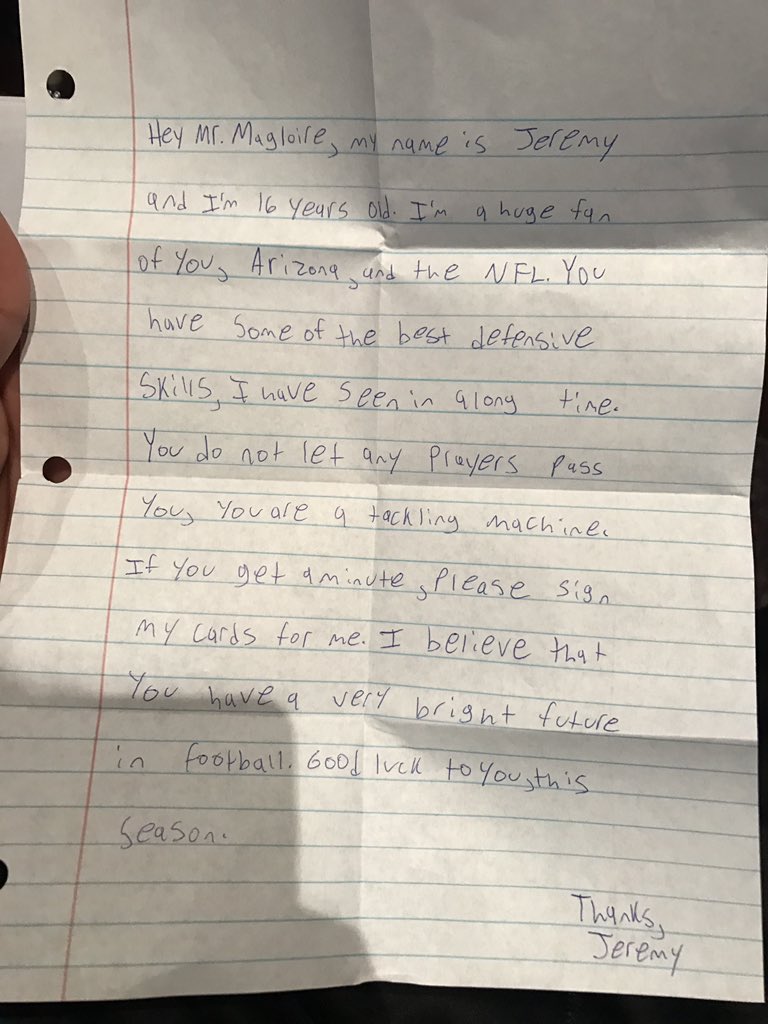 Hey Mr. Magloire, my name is Jeremy
and I'm 16 years old. I'm a huge fan
of you, Arizona, and the NFL. You
have some of the best defensive
skills, I have seen in along time.
You do not let any Prayers pass
you, you are a tackling machine.
If you get a minute, please sign
my cards for me. I believe that
you have a very bright future
in football. Good luck to you, this
season.
Thanks,
Jeremy